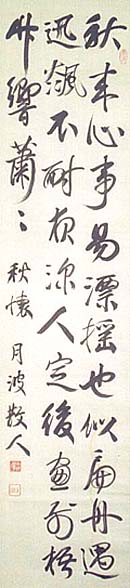 秋来心事易漂揺也似扁舟遇
迅飈不耐夜深人定後窗前梧
竹響蕭〻
秋懐 月波散人